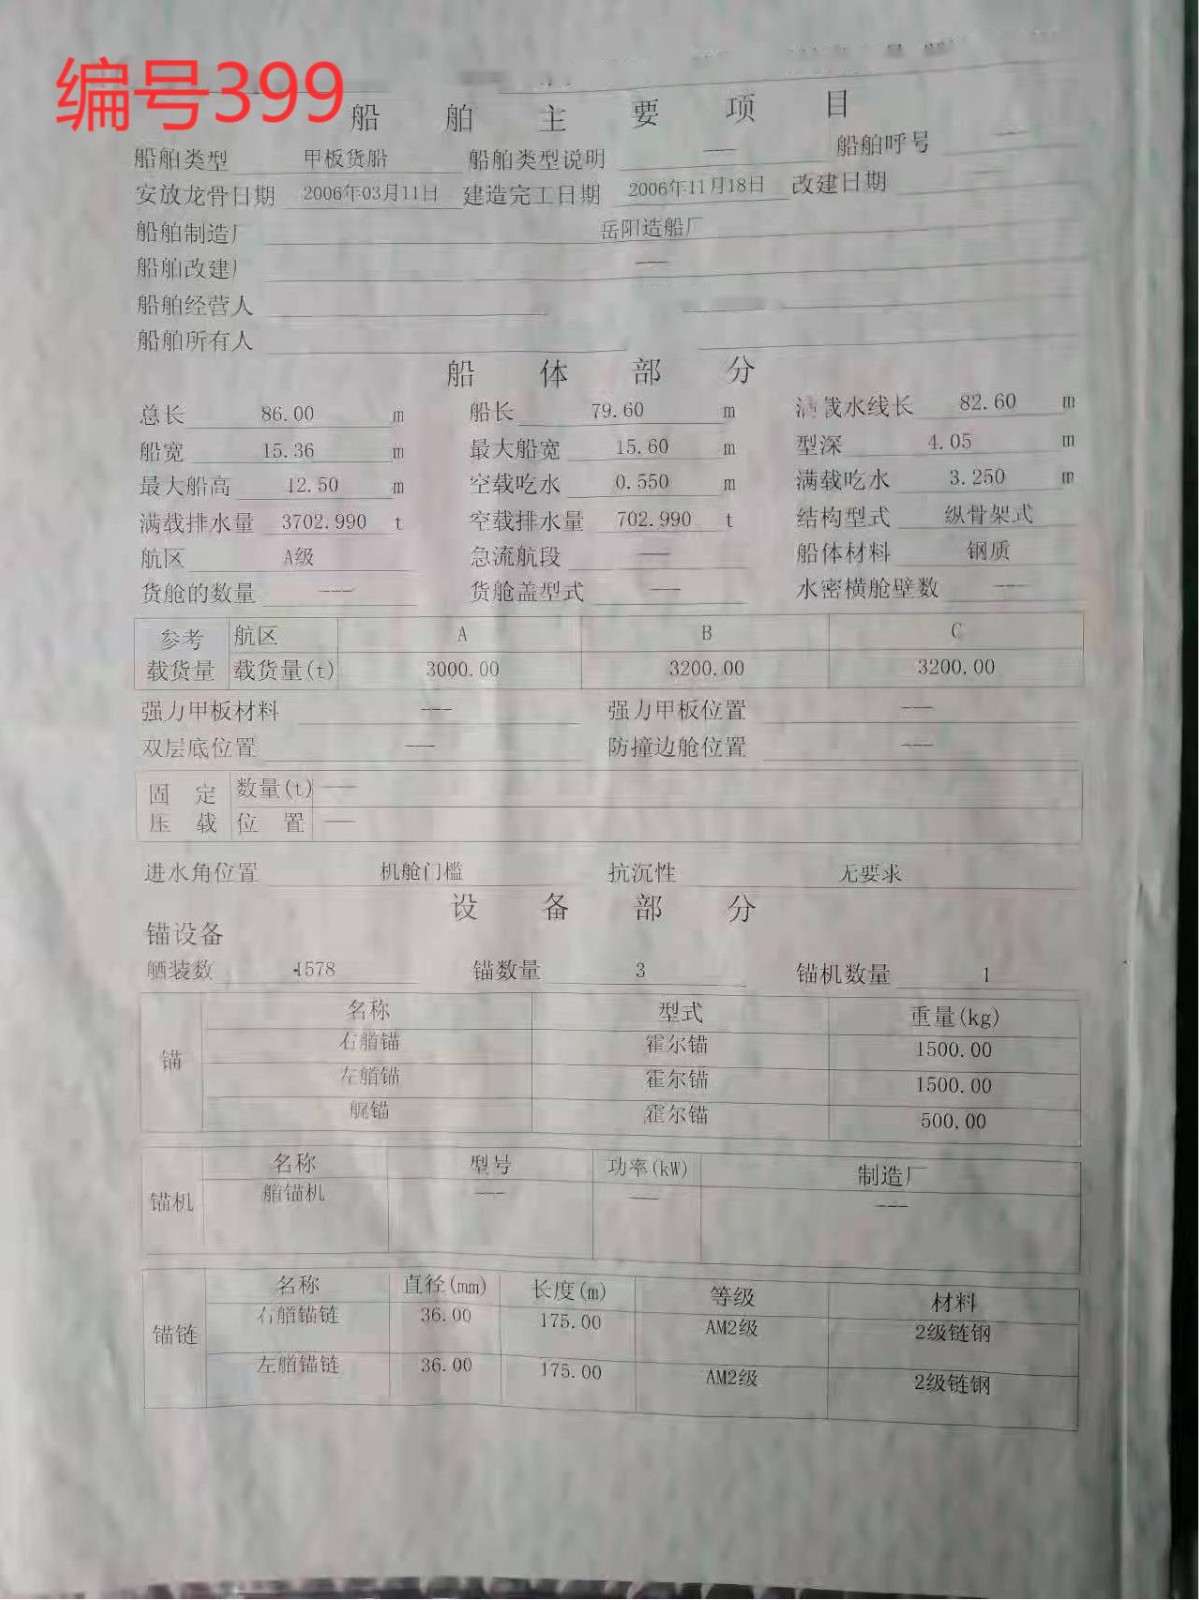 编号399
船舶主要项目
船舶类型 甲板货船 船舶类型说明 --- 船舶呼号 ---
安放龙骨日期 2006年03月11日 建造完工日期 2006年11月18日 改建日期 ---
船舶制造厂 岳阳造船厂
船舶改建厂 ---
船舶经营人
船舶所有人
船体部分
总长 86.00 m 船长 79.60 m 满载水线长 82.60 m
船宽 15.36 m 最大船宽 15.60 m 型深 4.05 m
最大船高 12.50 m 空载吃水 0.550 m 满载吃水 3.250 m
满载排水量 3702.990 t 空载排水量 702.990 t 结构型式 纵骨架式
航区 A级 急流航段 --- 船体材料 钢质
货舱的数量 --- 货舱盖型式 --- 水密横舱壁数 ---
参考 航区 A B C
载货量 载货量(t) 3000.00 3200.00 3200.00
强力甲板材料 --- 强力甲板位置 ---
双层底位置 --- 防撞边舱位置 ---
固定 数量(t) ---
压载 位置 ---
进水角位置 机舱门槛 抗沉性 无要求
设备部分
锚设备
舾装数 1578 锚数量 3 锚机数量 1
锚 名称 型式 重量(kg)
右艏锚 霍尔锚 1500.00
左艏锚 霍尔锚 1500.00
艉锚 霍尔锚 500.00
锚机 名称 型号 功率(kW) 制造厂
艏锚机 --- --- ---
锚链 名称 直径(mm) 长度(m) 等级 材料
右艏锚链 36.00 175.00 AM2级 2级链钢
左艏锚链 36.00 175.00 AM2级 2级链钢